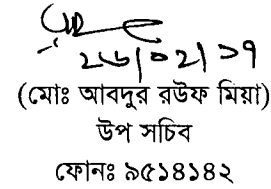 (মোঃ আবদুর রউফ মিয়া)
উপ সচিব
ফোনঃ ৯৫১৪১৪২